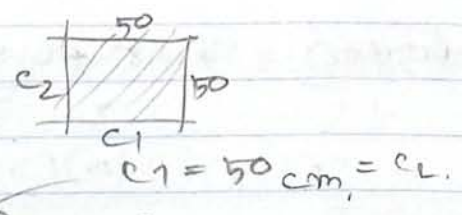 50
C2
50
C1
C1 = 50 cm = C2.